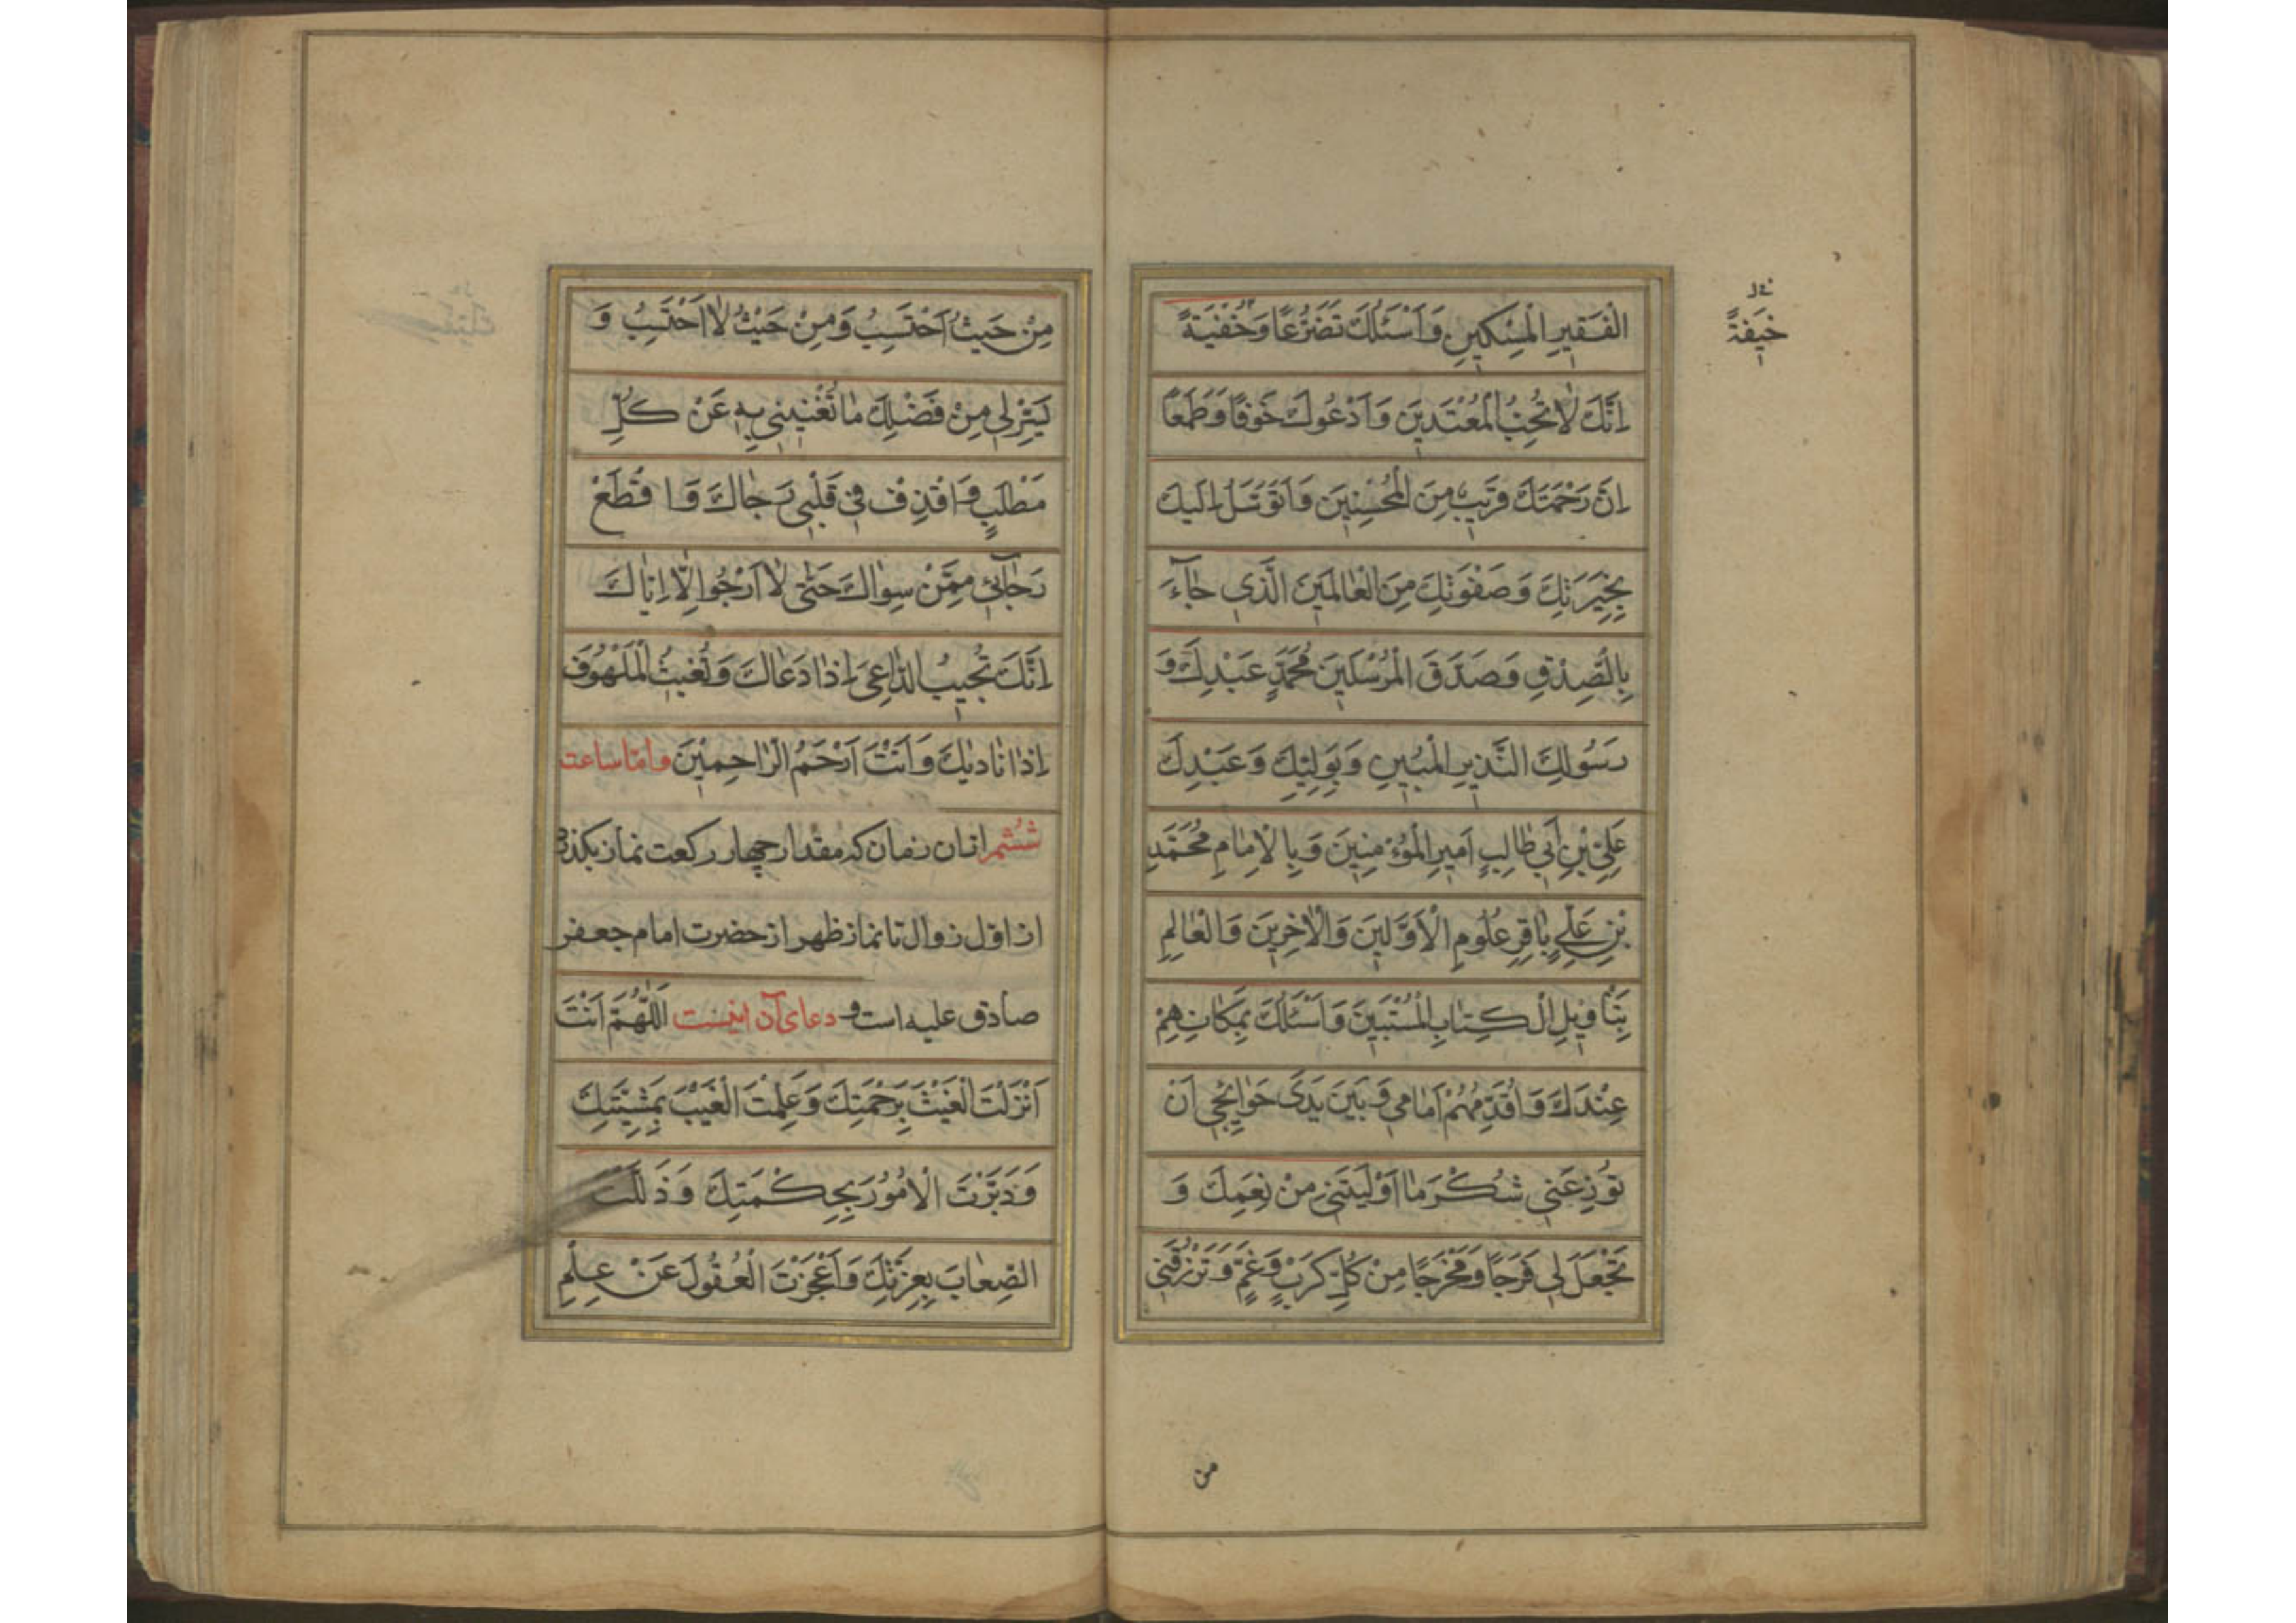 الْفَقِيرِ الْمِسْكِينِ وَاَسْئَلُكَ تَضَرُّعًا وَخُفْيَةً
خل
خِيفَةً
اِنَّكَ لَا تُحِبُّ الْمُعْتَدِينَ وَاَدْعُوكَ خَوْفًا وَطَمَعًا
اِنَّ رَحْمَتَكَ قَرِيبٌ مِنَ الْمُحْسِنِينَ وَاَتَوَسَّلُ اِلَيْكَ
بِخِيَرَتِكَ وَصَفْوَتِكَ مِنَ الْعَالَمِينَ الَّذِي جَآءَ
بِالصِّدْقِ وَصَدَّقَ الْمُرْسَلِينَ مُحَمَّدٍ عَبْدِكَ وَ
رَسُولِكَ النَّذِيرِ الْمُبِينِ وَبِوَلِيِّكَ وَعَبْدِكَ
عَلِيِّ بْنِ اَبِي طَالِبٍ اَمِيرِ الْمُؤْمِنِينَ وَبِالْاِمَامِ مُحَمَّدِ
بْنِ عَلِيٍّ بَاقِرِ عُلُومِ الْاَوَّلِينَ وَالْاٰخِرِينَ وَالْعَالِمِ
بِتَأْوِيلِ الْكِتَابِ الْمُسْتَبِينِ وَاَسْئَلُكَ بِمَكَانِهِمْ
عِنْدَكَ وَاُقَدِّمُهُمْ اَمَامِي وَبَيْنَ يَدَيْ حَوَائِجِي اَنْ
تُوزِعَنِي شُكْرَ مَا اَوْلَيْتَنِي مِنْ نِعَمِكَ وَ
تَجْعَلَ لِي فَرَجًا وَمَخْرَجًا مِنْ كُلِّ كَرْبٍ وَغَمٍّ وَتَرْزُقَنِي
من
مِنْ حَيْثُ اَحْتَسِبُ وَمِنْ حَيْثُ لَا اَحْتَسِبُ وَ
يَسِّرْ لِي مِنْ فَضْلِكَ مَا تُغْنِينِي بِهِ عَنْ كُلِّ
مَطْلَبٍ وَاقْذِفْ فِي قَلْبِي رَجَاكَ وَاقْطَعْ
رَجَآئِي مِمَّنْ سِوَاكَ حَتّٰى لَا اَرْجُوا اِلَّا اِيَّاكَ
اِنَّكَ تُجِيبُ الدَّاعِيَ اِذَا دَعَاكَ وَتُغِيثُ الْمَلْهُوفَ
اِذَا نَادٰيكَ وَاَنْتَ اَرْحَمُ الرَّاحِمِينَ واما ساعت
ششم از ان زمان که مقدار چهار رکعت نماز بکذرد
از اول زوال تا نماز ظهر از حضرت امام جعفر
صادق علیه است و دعای آن اینست اَللّٰهُمَّ اَنْتَ
اَنْزَلْتَ الْغَيْثَ بِرَحْمَتِكَ وَعَلِمْتَ الْغَيْبَ بِمَشِيَّتِكَ
وَدَبَّرْتَ الْاُمُورَ بِحِكْمَتِكَ وَذَلَّلْتَ
الصِّعَابَ بِعِزَّتِكَ وَاَعْجَزْتَ الْعُقُولَ عَنْ عِلْمِ